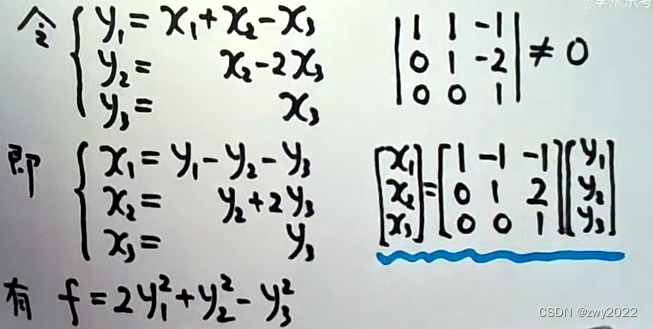 令 { y₁ = x₁ + x₂ - x₃
y₂ = x₂ - 2x₃
y₃ = x₃
| 1 1 -1 |
| 0 1 -2 | ≠ 0
| 0 0 1 |
即 { x₁ = y₁ - y₂ - y₃
x₂ = y₂ + 2y₃
x₃ = y₃
[x₁] = [1 -1 -1] [y₁]
[x₂] = [0 1 2] [y₂]
[x₃] = [0 0 1] [y₃]
有 f = 2y₁² + y₂² - y₃²
CSDN @zwy2022